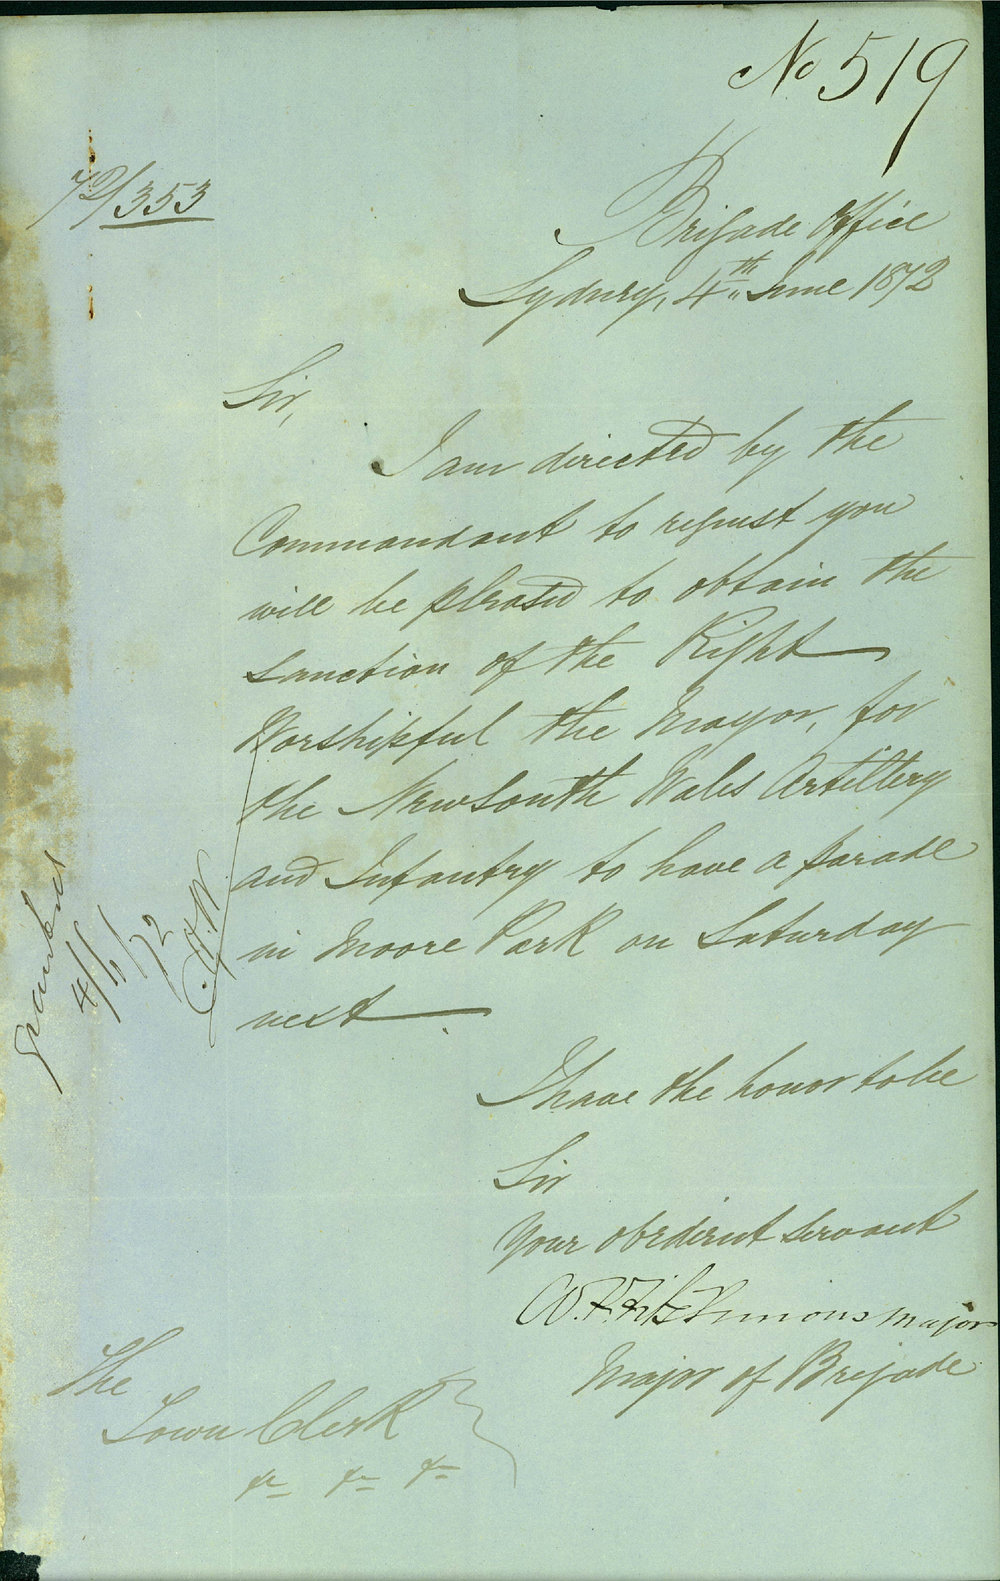 No 519
72/353
Brigade Office
Sydney, 4th June 1872
Sir,
I am directed by the
Commandant to request you
will be pleased to obtain the
sanction of the Right
Worshipful the Mayor, for
the New South Wales Artillery
and Infantry to have a parade
in Moore Park on Saturday
next.
Granted
4/6/72
I have the honor to be
Sir
Your obedient servant
W. F. FitzSimons Major
Major of Brigade
The
Town Clerk
&c &c &c